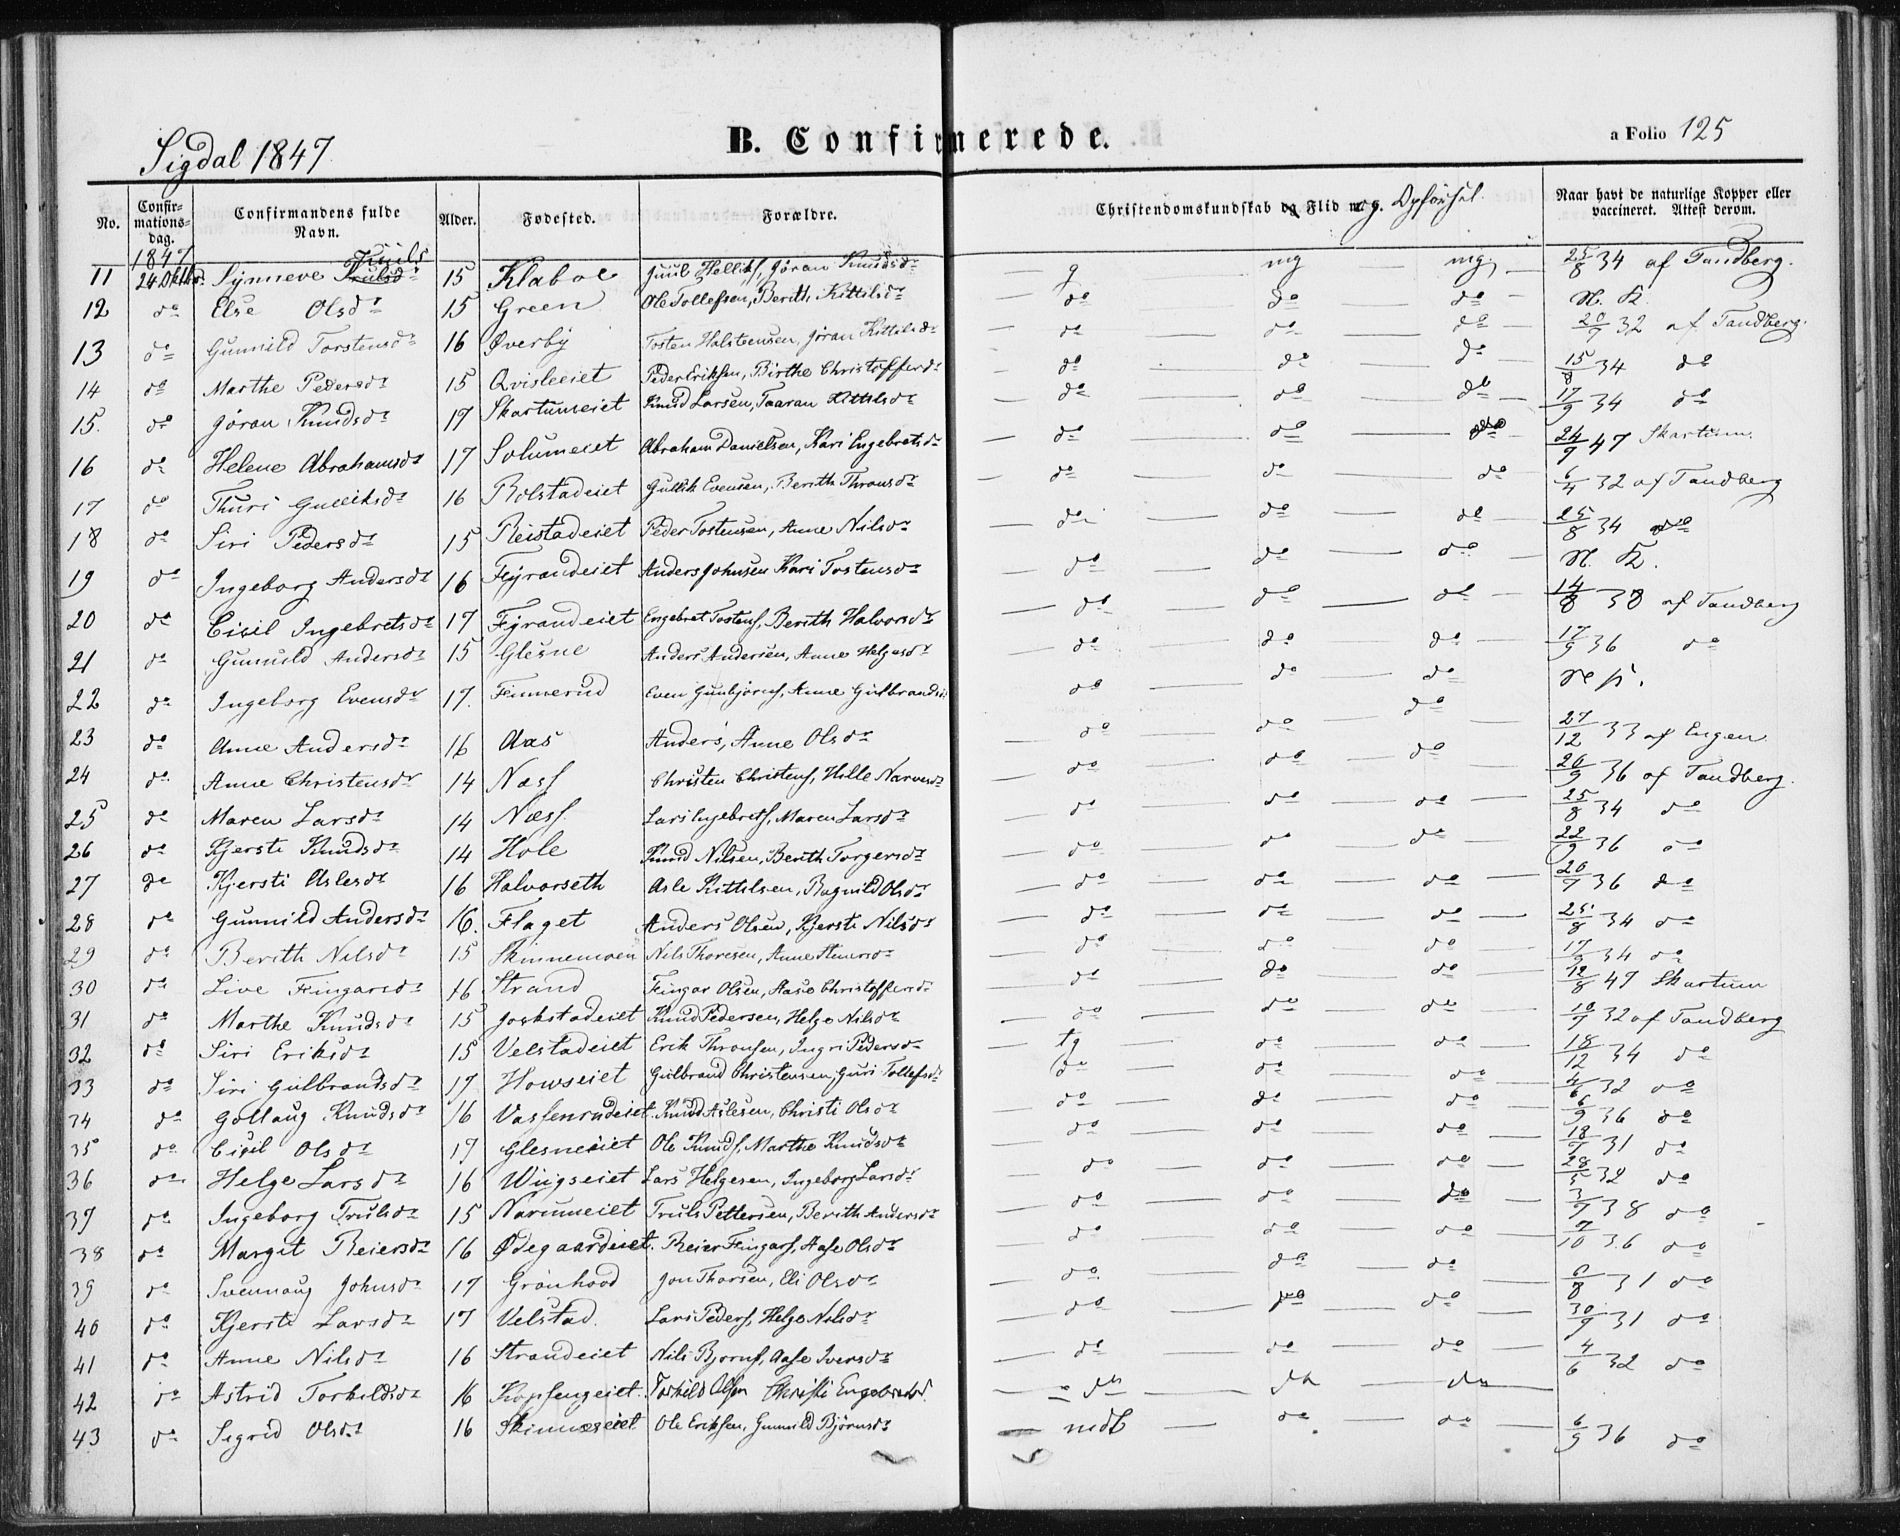 Sigdal 1847.
B. Confirmerede.
a Folio 125
No. Confirmationsdag. Confirmandens fulde Navn. Alder. Fødested. Forældre. Christendomskundskab og Flid m. g. Opførsel. Naar havt de naturlige Kopper eller vaccineret. Attest derom.
1847 Juuls
11 24 Oktbr. Synneve Trulsdr 15 Klaboe Juul Helliks, Jøran Knudsdr g mg mg. 25/8 34 af Tandberg.
12 do Else Olsdr 15 Green Ole Tollefsen, Berith Kittilsdr do do do N. K.
13 do Gunnild Torstensdr 16 Øverby Tosten Halsteensen, Jøran Kittilsdr do do do 20/9 32 af Tandberg.
14 do Marthe Pedersdr 15 Qvisleeiet Peder Eriksen, Birthe Christoffersdr do do do 15/8 34 do
15. do Jøran Knudsdr 17 Skartumeiet Knud Larsen, Taaran Kittilsdr do do do 17/9 34 do
16 do Helene Abrahamsdr 17 Solumeiet Abraham Danielsen, Kari Engebretsdr do do do 24/9 47 Skartum.
17 do Thuri Gulliksdr 16 Rolstadeiet Gullik Evensen, Berith Thronsdr do do do 6/4 32 af Tandberg
18 do Siri Pedersdr 15 Reistadeiet Peder Tostensen, Anne Nilsdr do do do 25/8 34 do
19 do Ingeborg Andersdr 16 Fyrandeiet Anders Johnsen Kari Tostensdr do do do N. K.
20 do Cicil Ingebretsdr 17 Fyrandeiet Engebret Tostens, Berith Halvorsdr do do do 14/8 38 af Tandberg
21 do Gunnild Andersdr 15 Glesne Anders Andersen, Anne Helgesdr do do do 17/9 36 do
22 do Ingeborg Evensdr 17. Finnerud Even Gunbjørns, Anne Gulbrandsdr do do do N. K.
23 do Anne Andersdr 16 Aas Anders, Anne Olsdr do do do 27/12 33 af Engen
24 do Anne Christensdr 14 Næss Christen Christens, Hille Narvesdr do do do 20/9 36 af Tandberg.
25 do Maren Larsdr 14 Næss Lars Ingebrets, Maren Larsdr do do do 25/8 34 do
26 do Kjersti Knudsdr 14 Hole Knud Nilsen, Berith Torgersdr do do do 22/9 36 do
27 do Kjersti Aslesdr 16 Halvorseth Asle Kittilsen, Ragnild Olsdr do do do 20/9 36 do
28 do Gunnild Andersdr 16. Flaget Anders Olsen, Kjersti Nilsdr do do do 25/8 34 do
29 do Berith Nilsdr 15 Skinnemoen Nils Thoresen, Anne Steinersdr do do do 17/9 34 do
30 do Live Fingarsdr 16 Strand Fingar Olsen, Aase Christoffersdr do do do 12/8 47 Skartum
31 do Marthe Knudsdr 15 Jokstadeiet Knud Pedersen, Helge Nilsdr do do do 10/9 32 af Tandberg
32 do Siri Eriksdr 15 Velstadeiet Erik Thronsen, Ingri Pedersdr tg do do 18/12 34 do
33 do Siri Gulbrandsdr 17 Howseiet Gulbrand Christensen, Guri Tollefsdr do do do 4/6 32 do
34 do Gollaug Knudsdr 16 Vassenrudeiet Knud Aslesen, Christi Olsdr do do do 6/9 36 do
35 do Cicil Olsdr 17 Glesneeiet Ole Knuds, Marthe Knudsdr do do do 18/9 31 do
36 do Helge Larsdr 16 Wiigseiet Lars Helgesen, Ingeborg Larsdr do do do 28/5 32 do
37 do Ingeborg Trulsdr 15 Narumeiet Truls Pettersen, Berith Andersdr do do do 3/9 38 do
38 do Margit Reiersdr 16 Ødegaardeiet. Reier Fingars, Aase Olsdr do do do 7/10 36 do
39 do Svennaug Johnsdr 17 Grønhood Jon Thorsen, Eli Olsdr do do do 6/8 31 do
40 do Kjersti Larsdr 17 Velstad. Lars Peders, Helge Nilsdr do do do 30/9 31 do
41 do Anne Nilsdr 16 Strandeiet Nils Bjørns, Aase Iversdr do do do 4/6 32 do
42 do Astrid Torkildsdr 16 Kopsengeiet. Torkild Olsen Christi Engebretsd. do do do
43 do Sigrid Olsdr 16 Skinneseiet Ole Eriksen, Gunnild Bjørnsdr mdt do do 6/9 36 do